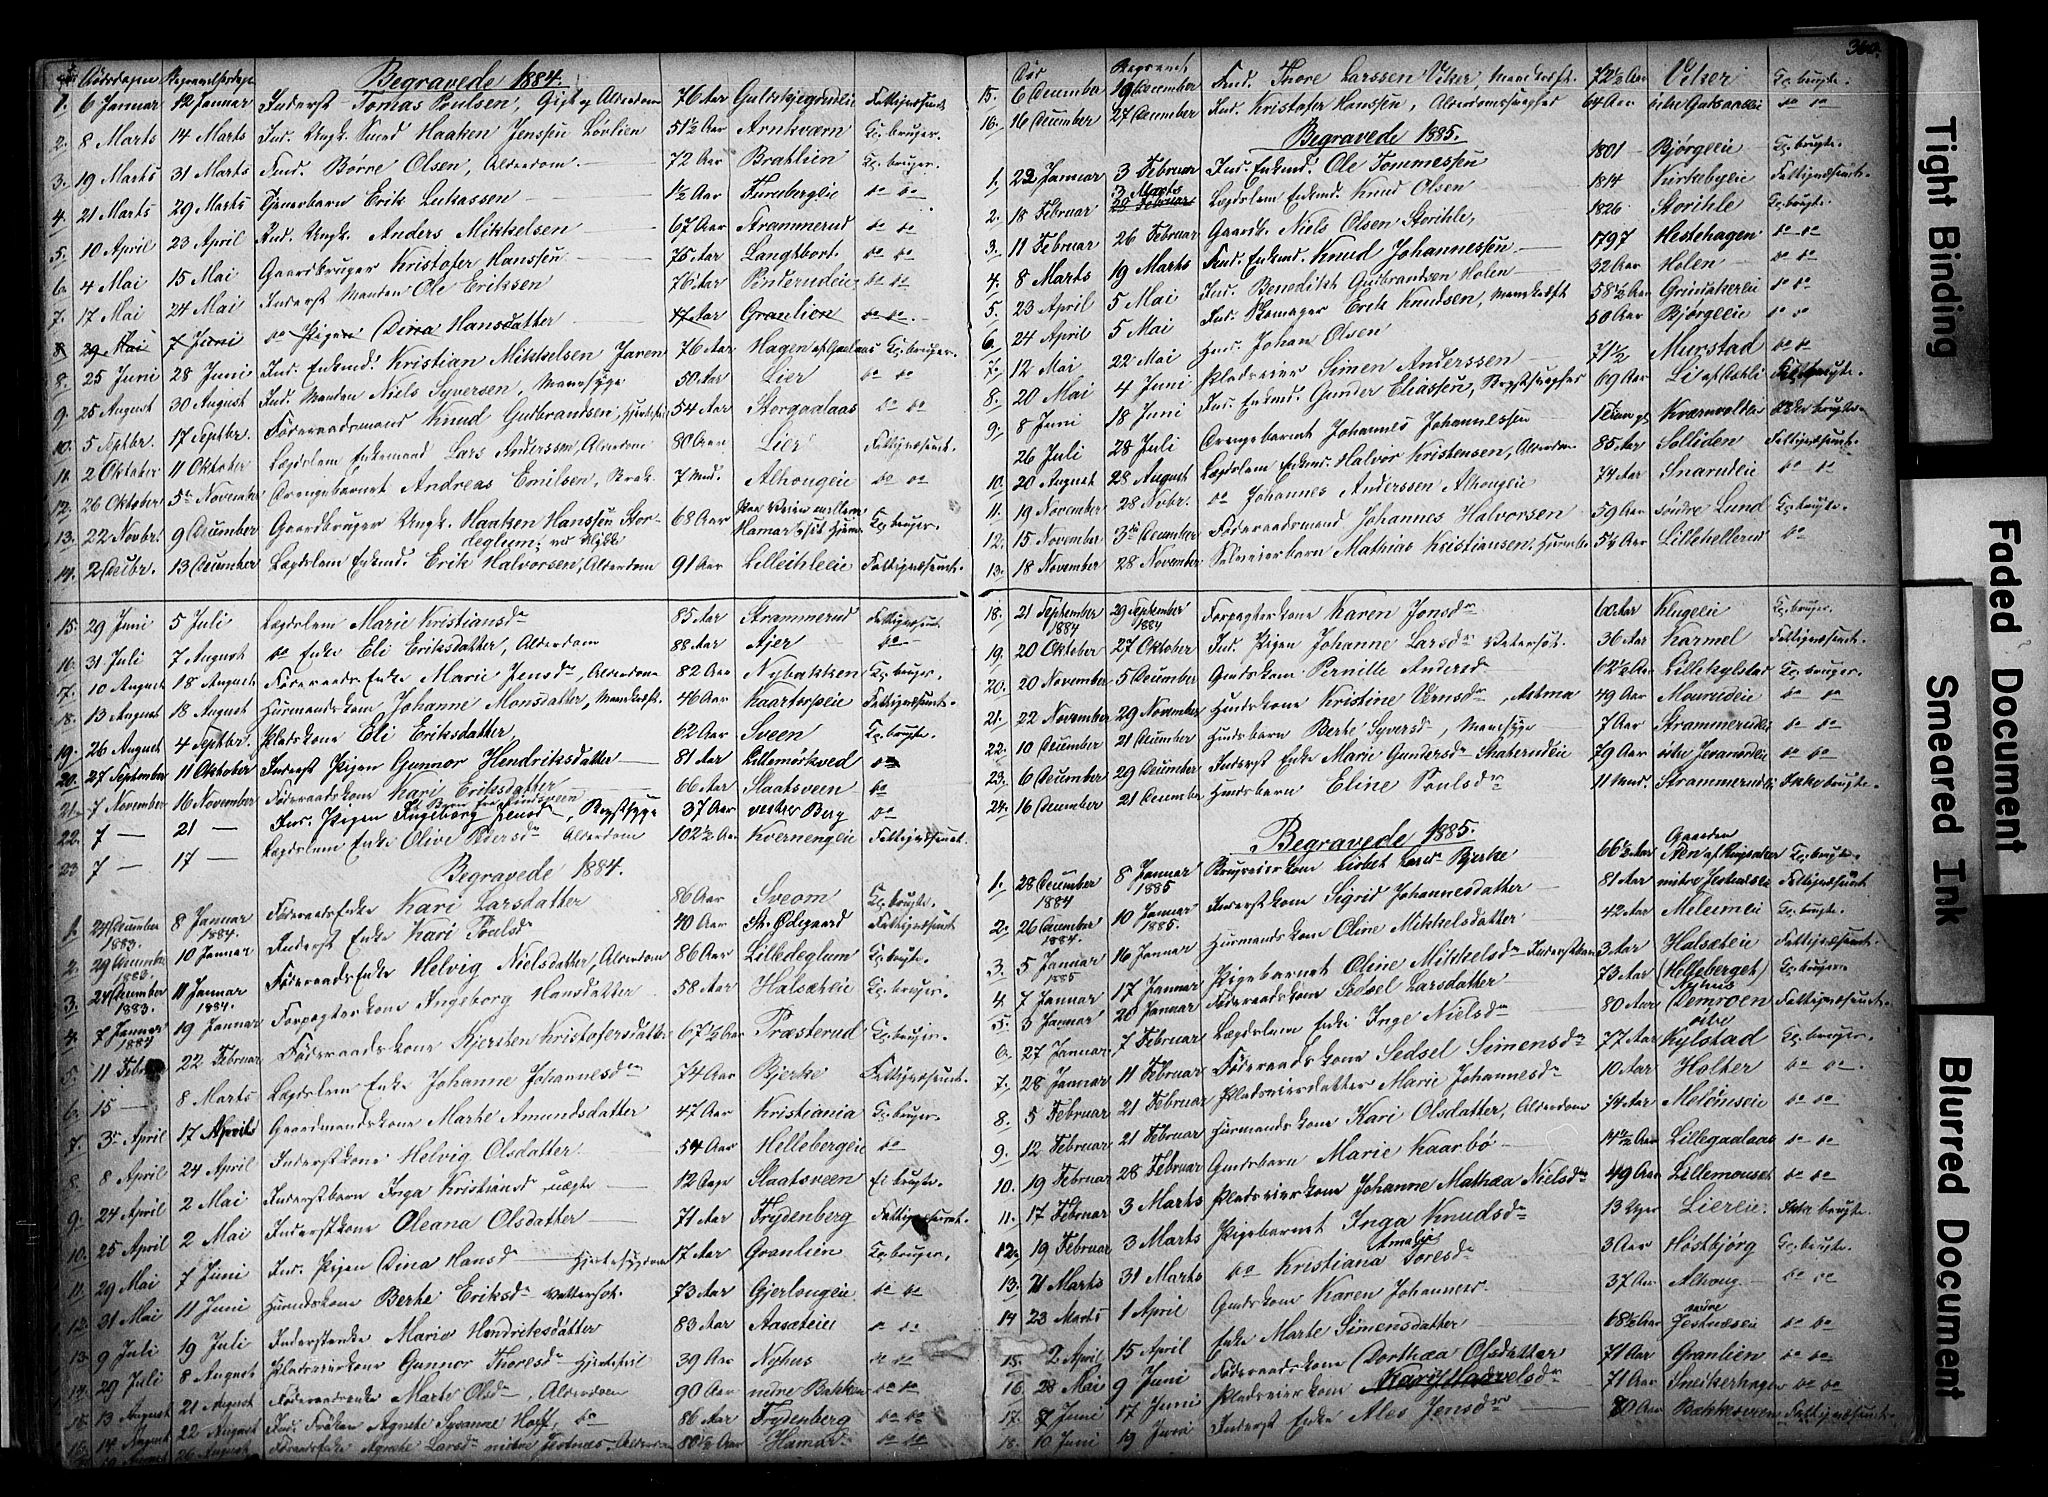 Dödsdagen Begravelsesdagen Begravede 1884.
1. 6 Januar 12 Januar Inderst Tomas Poulsen, Gigt & Alderdom 76 Aar Fattigvæsenet
2. 8 Marts 14 Marts Ind. Ungk. Knud Haaken Jenssen Lörlien 51½ Aar Arnkværn bruger.
3. 19 Marts 31 Marts Ind. Börre Olsen, Alderdom 72 Aar Bratlien bruger.
4. 21 Marts 29 Marts Tjenerbarn Erik Lukassen 1½ Aar Fureberglie do do
5. 10 April 23 April Ind. Ungk. Anders Mikkelsen 67 Aar Strammerud do do
6. 4 Mai 15 Mai Gaardbruger Kristofer Hanssen 75 Aar Langtbort do do
7. 17 Mai 24 Mai Inderst Manden Ole Eriksen 76 Aar do do
8 29 Mai 7 Juni do Pigen Dina Hansdatter 17 Aar Granlien do do
8. 25 Juni 28 Juni Ind. Enkemd. Kristian Mikkelsen Jaren 76 Aar Hagen af Gaalaas bruger.
9. 25 August 30 August Ind. Manden Niels Syversen, Mavesyge 50 Aar Lier do do
10. 5 Septbr. 17 Septbr. Föderaadsmand Knud Gudbrandsen, 54 Aar Storgaalaas do do
11. 2 Oktober 11 Oktober Lægdslem Enkemand Lars Anderssen, Alderdom 80 Aar Lier Fattigvæsenet.
12. 26 Oktober 5te November Drengebarnet Andreas Emilsen, 7 Mnd. Alhougeie do do
13. 22 Novbr. 9 December Gaardbruger Ungk. Haaken Hanssen Stor-
deglum, ved Ulykke 68 Aar Paa Veien mellem
Hamar & sit Hjem bruger.
14. 2 Decbr. 13 December Lægdslem Enkemd. Erik Halvorsen, Alderdom 91 Aar Lilleihleeie Fattigvæsenet.
15. 29 Juni 5 Juli Lægdslem Marie Kristiansdr 85 Aar Strammerud Fattigvæsenet
16. 31 Juli 7 August do Enke Eli Eriksdatter, Alderdom 88 Aar Ajer do
17. 10 August 18 August Föderaads Enke Marie Jensdr, Alderdom 82 Aar Nybakken bruger.
18. 13 August 18 August Huusmandskone Johanne Monsdatter, 46 Aar Kaartorpeie Fattigvæsenet.
19. 26 August 4 Septbr. Pladskone Eli Eriksdatter, 62 Aar Sveen brugte.
20. 27 September 11 Oktober Inderst Pigen Gunnor Hendriksdatter 81 Aar Lillemörkved do
21. 7 November 16 November Föderaadskone Kari Eriksdatter 66 Aar Staatsveen do
22. 7 — 21 — Ind. Pigen Ingeborg Jensdr, Brystsyge 37 Aar vestre Berg do
23 7 — 17 — Lægdslem Enke Olive Pedersdr Alderdom 102½ Aar Kvernengeie Fattigvæsenet.
Begravede 1884.
1. 24 December 1883. 8 Januar 1884. Föderaads Enke Kari Larsdatter 86 Aar Sveom brugte.
2. 29 December 1883. 10 Januar Inderst Enke Kari Poulsdr 40 Aar St. Ödegaard Fattigvæsenet
3. 24 December 1883 11 Januar 1884. Föderaads Enke Helvig Nielsdatter, Alderdom 86 Aar Lilledeglum brugte.
4. 7 Januar 1884 19 Januar Forpagterkone Ingeborg Hansdatter 58 Aar Halsæteie bruger.
5. 11 Februar 22 Februar Föderaadskone Kjersten Kristofersdatter 67½ Aar Præsterud bruger.
6. 15 — 8 Marts Lægdslem Enke Johanne Johannesdr 74 Aar Bjerke Fattigvæsenet.
7. 3 April 17 April Gaardmandskone Marte Amundsdatter 47 Aar Kristiania bruger.
8. 8 April 24 April Inderstkone Helvig Olsdatter 54 Aar Hellebergeie do
9. 24 April 2 Mai Inderstbarn Inga Kristiansd uægte 12 Dage Staatsveen Ei brugte.
10. 25 April 2 Mai Inderstkone Oleana Olsdatter 71 Aar Frydenberg Fattigvæsenet.
11. 29 Mai 7 Juni Ind. Pigen Dina Hansd — Hjertesygdom 17 Aar Granlien bruger.
12. 31 Mai 11 Juni Huusmdskone Berte Eriksdr Vattersot. 73 Aar Gjerlougeie do do
13. 9 Juli 19 Juli Inderstenke Marie Hendriksdatter 83 Aar Aasæteie do do
14. 29 Juli 8 August Pladseierkone Gunnor Thoresdr Hjertefeil 39 Aar Nyhus do do
15. 13 August 21 August Föderaadsenke Marte Olsdr, Alderdom 90 Aar nedre Bakken do do
16. 14 August 22 August Ind. Fröken Agnete Susanne Hoff, do 86 Aar Frydenberg do do
19 August 26 August Föderaadsenke Agnethe Larsdr Alderdom 80½ Aar Hamar do do
360.
Död Begravet
15. 6 December 19 December Ind. Thore Larssen Vilzer, 72½ Aar Vilzer brugte.
16. 16 December 27 December Ind. Kristofer Hanssen, Alderdomssvaghed 64 Aar do do
Begravede 1885.
1. 22 Januar 3 Februar Ind. Enkemd. Ole Tommessen 1801 Bjørgeeie brugte.
2. 18 Februar 3 Marts Lægdslem Enkemd. Knud Olsen 1814 Kirkebyeie Fattigvæsenet.
3. 11 Februar 26 Februar Gaardb. Niels Olsen Storihle, 1826 Storihle brugte.
4. 8 Marts 19 Marts Ind. Enkemd. Knud Johannessen 1797 Hestehagen do do
5. 23 April 5 Mai Ind. Benedikt Gudbrandsen Holen 32 Aar Holen do do
6. 24 April 5 Mai Ind. Skomager Erik Knudsen, 58½ Aar Grinakereie do do
7. 12 Mai 22 Mai Husmd. Johan Olsen 50 Aar Bjørgeeie do do
8. 20 Mai 4 Juni Pladseier Simen Anderssen 71½ Murstad do do
9. 8 Juni 18 Juni Ind. Enkemd. Gunder Eliassen, Brystsvaghed 69 Aar Li af Ashli brugte.
26 Juli 28 Juli Drengebarnet Johannes Johannessen 1 Time gl. Kværnvolden Ikke brugte
10. 20 August 28 August Lægdslem Enkemd. Halvor Kristensen, Alderdom 85 Aar Solliden Fattigvæsenet.
11. 19 November 28 Novbr. do Johannes Anderssen Alhougeie 74 Aar Snarudeie do do
12. 15 November 3die December Föderaadsmand Johannes Halvorsen 59 Aar söndre Lund brugte.
13. 18 November 28 November Selveierbarn Mathias Kristiansen, 5½ Aar Lillehellerud do
18. 21 September 1884 29 September 1884 Forpagterkone Karen Jonsdr 60 Aar Klugeie bruger.
19. 20 Oktober 27 Oktober Ind. Pigen Johanne Larsdr Vatersot. 36 Aar Karmel Fattigvæsenet.
20. 20 November 5 December Gaardskone Pernille Andersd 62½ Aar Lillekylstad bruger.
21. 22 November 29 November Huusdskone Kristine Arnsdr, Astma 49 Aar Mourudeie do do
22. 10 December 21 December Huusdsbarn Berte Syversd, Mavesyge 7 Aar Strammerudeie do do
23. 6 December 29 December Inderst Enke Marie Gundersdr Skaterudeie 79 Aar do do
24. 16 December 21 December Huusdsbarn Eline Poulsdr 11 Mnd. Strammerudeie Ikke brugte.
Begravede 1885.
1. 28 December 1884 8 Januar 1885 Brugeierkone Lisbet Larsd Bjerke 66½ Aar Gaarden Nen af Ringsaker brugte.
2. 26 December 1884. 10 Januar 1885. Inderstkone Sigrid Johannesdatter 81 Aar Fattigvæsenet
3. 5 Januar 1885 16 Januar Huusmandskone Oline Mikkelsdatter 42 Aar Melumeie brugte.
4. 7 Januar 17 Januar Pigebarnet Oline Mikkelsdr Inderstbarn 3 Aar Halsæteie Fattigvæsenet.
5. 3 Januar 20 Januar Föderaadskone Sedsel Larsdatter 73 Aar (Helleberget) Nyhus bruger.
6. 27 Januar 7 Februar Lægdslem Enke Inge Nielsdr 80 Aar Demroen Fattigvæsenet.
7. 28 Januar 11 Februar Föderaadskone Sedsel Simensdr 77 Aar östre Kylstad bruger.
8. 5 Februar 21 Februar Pladseierdatter Marie Johannesdr 10 Aar Holter do do.
9. 12 Februar 21 Februar Huusmandskone Kari Olsdatter, Alderdom 74 Aar Melönseie do do
10. 19 Februar 28 Februar Gaardsbarn Marie Kaarbö Lillegaalaas do do
11. 17 Februar 3 Marts Pladseierkone Johanne Mathea Nielsdr 49 Aar Lillemouset do do
12. 19 Februar 3 Marts Pigebarnet Inga Knudsdr 13 Uger Liereie. Ikke brugte.
13. 21 Marts 31 Marts do Kristiana Amalie Toresdr 3 Aar Höstbjörg brugte.
14 23 Marts 1 April Gaardskone Karen Johannesd. 37 Aar Alhoug do do
15. 2 April 15 April Enke Marte Simensdatter 68½ Aar nedre Festnæseie do do
16 28 Mai 9 Juni Föderaadskone Dorthea Olsdatter 71 Aar Granlien do do
17. 8 Juni 17 Juni Pladseierkone Kari 71 Aar Sneikerhagen do do
18. 10 Juni 19 Juni Inderst Enke Ales Jensdr 80 Aar Bækkesveen Fattigvæsenet.
Tight Binding
Faded Document
Smeared Ink
Blurred Document